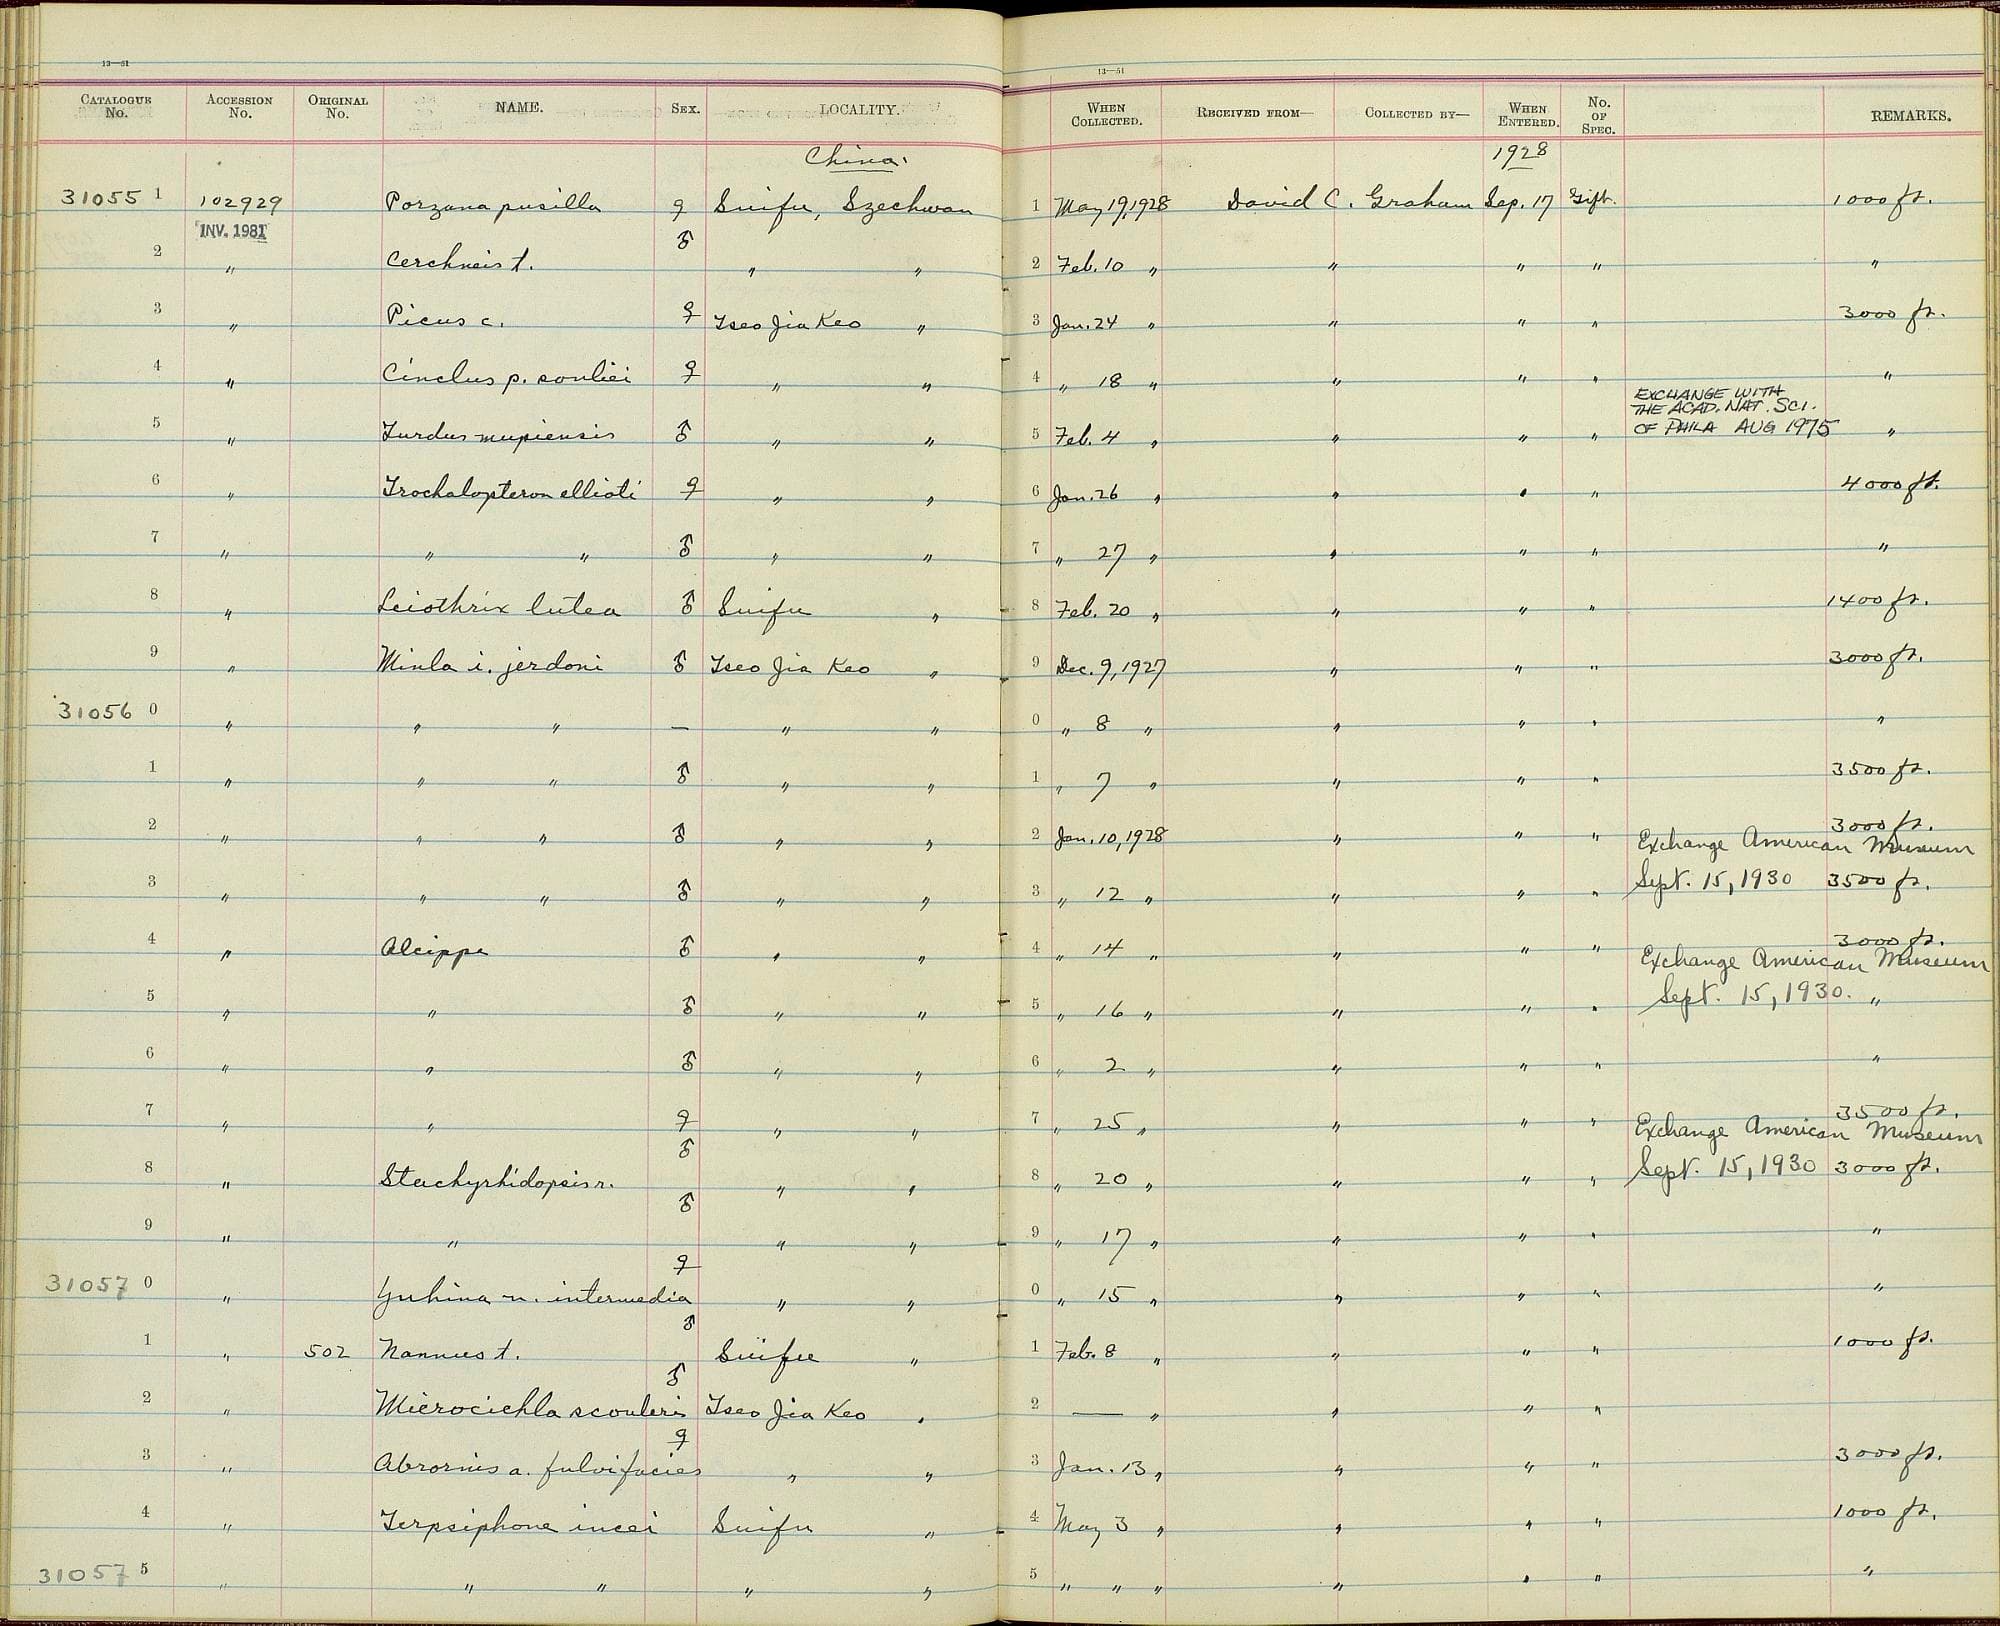 13—51 13—51
CATALOGUE No. ACCESSION No. ORIGINAL No. NAME. SEX. LOCALITY. WHEN COLLECTED. RECEIVED FROM— COLLECTED BY— WHEN ENTERED. No. OF SPEC. REMARKS.
China. 1928
31055 1 102929 Porzana pusilla ♀ Suifu, Szechwan 1 May 19, 1928 David C. Graham Sep. 17 Gift. 1000 ft.
INV. 1981
2 " Cerchneis t. ♂ " " 2 Feb. 10 " " " " "
3 " Picus c. ♀ Tseo Jia Keo " 3 Jan. 24 " " " " 3000 ft.
4 " Cinclus p. souliei ♀ " " 4 " 18 " " " " "
EXCHANGE WITH
THE ACAD. NAT. SCI.
OF PHILA AUG 1975
5 " Turdus mupiensis ♂ " " 5 Feb. 4 " " " " "
6 " Trochalopteron ellioti ♀ " " 6 Jan. 26 " " " " 4000 ft.
7 " " " ♂ " " 7 " 27 " " " " "
8 " Leiothrix lutea ♂ Suifu " 8 Feb. 20 " " " " 1400 ft.
9 " Minla i. jerdoni ♂ Tseo Jia Keo " 9 Dec. 9, 1927 " " " 3000 ft.
31056 0 " " " — " " 0 " 8 " " " " "
1 " " " ♂ " " 1 " 7 " " " " 3500 ft.
2 " " " ♂ " " 2 Jan. 10, 1928 " " " 3000 ft.
Exchange American Museum
Sept. 15, 1930
3 " " " ♂ " " 3 " 12 " " " " 3500 ft.
4 " Alcippe ♂ " " 4 " 14 " " " " 3000 ft.
Exchange American Museum
Sept. 15, 1930.
5 " " ♂ " " 5 " 16 " " " " "
6 " " ♂ " " 6 " 2 " " " " "
7 " " ♀ " " 7 " 25 " " " " 3500 ft.
Exchange American Museum
Sept. 15, 1930
8 " Stachyrhidopsis r. ♂ " " 8 " 20 " " " " 3000 ft.
9 " " ♂ " " 9 " 17 " " " " "
31057 0 " Yuhina n. intermedia ♀ " " 0 " 15 " " " " "
1 " 502 Nannus t. ♂ Suifu " 1 Feb. 8 " " " " 1000 ft.
2 " Microcichla scouleri ♂ Tseo Jia Keo " 2 — " " " "
3 " Abrornis a. fulvifacies ♀ " " 3 Jan. 13 " " " " 3000 ft.
4 " Terpsiphone incei Suifu " 4 May 3 " " " " 1000 ft.
31057 5 " " " " " 5 " " " " " " "